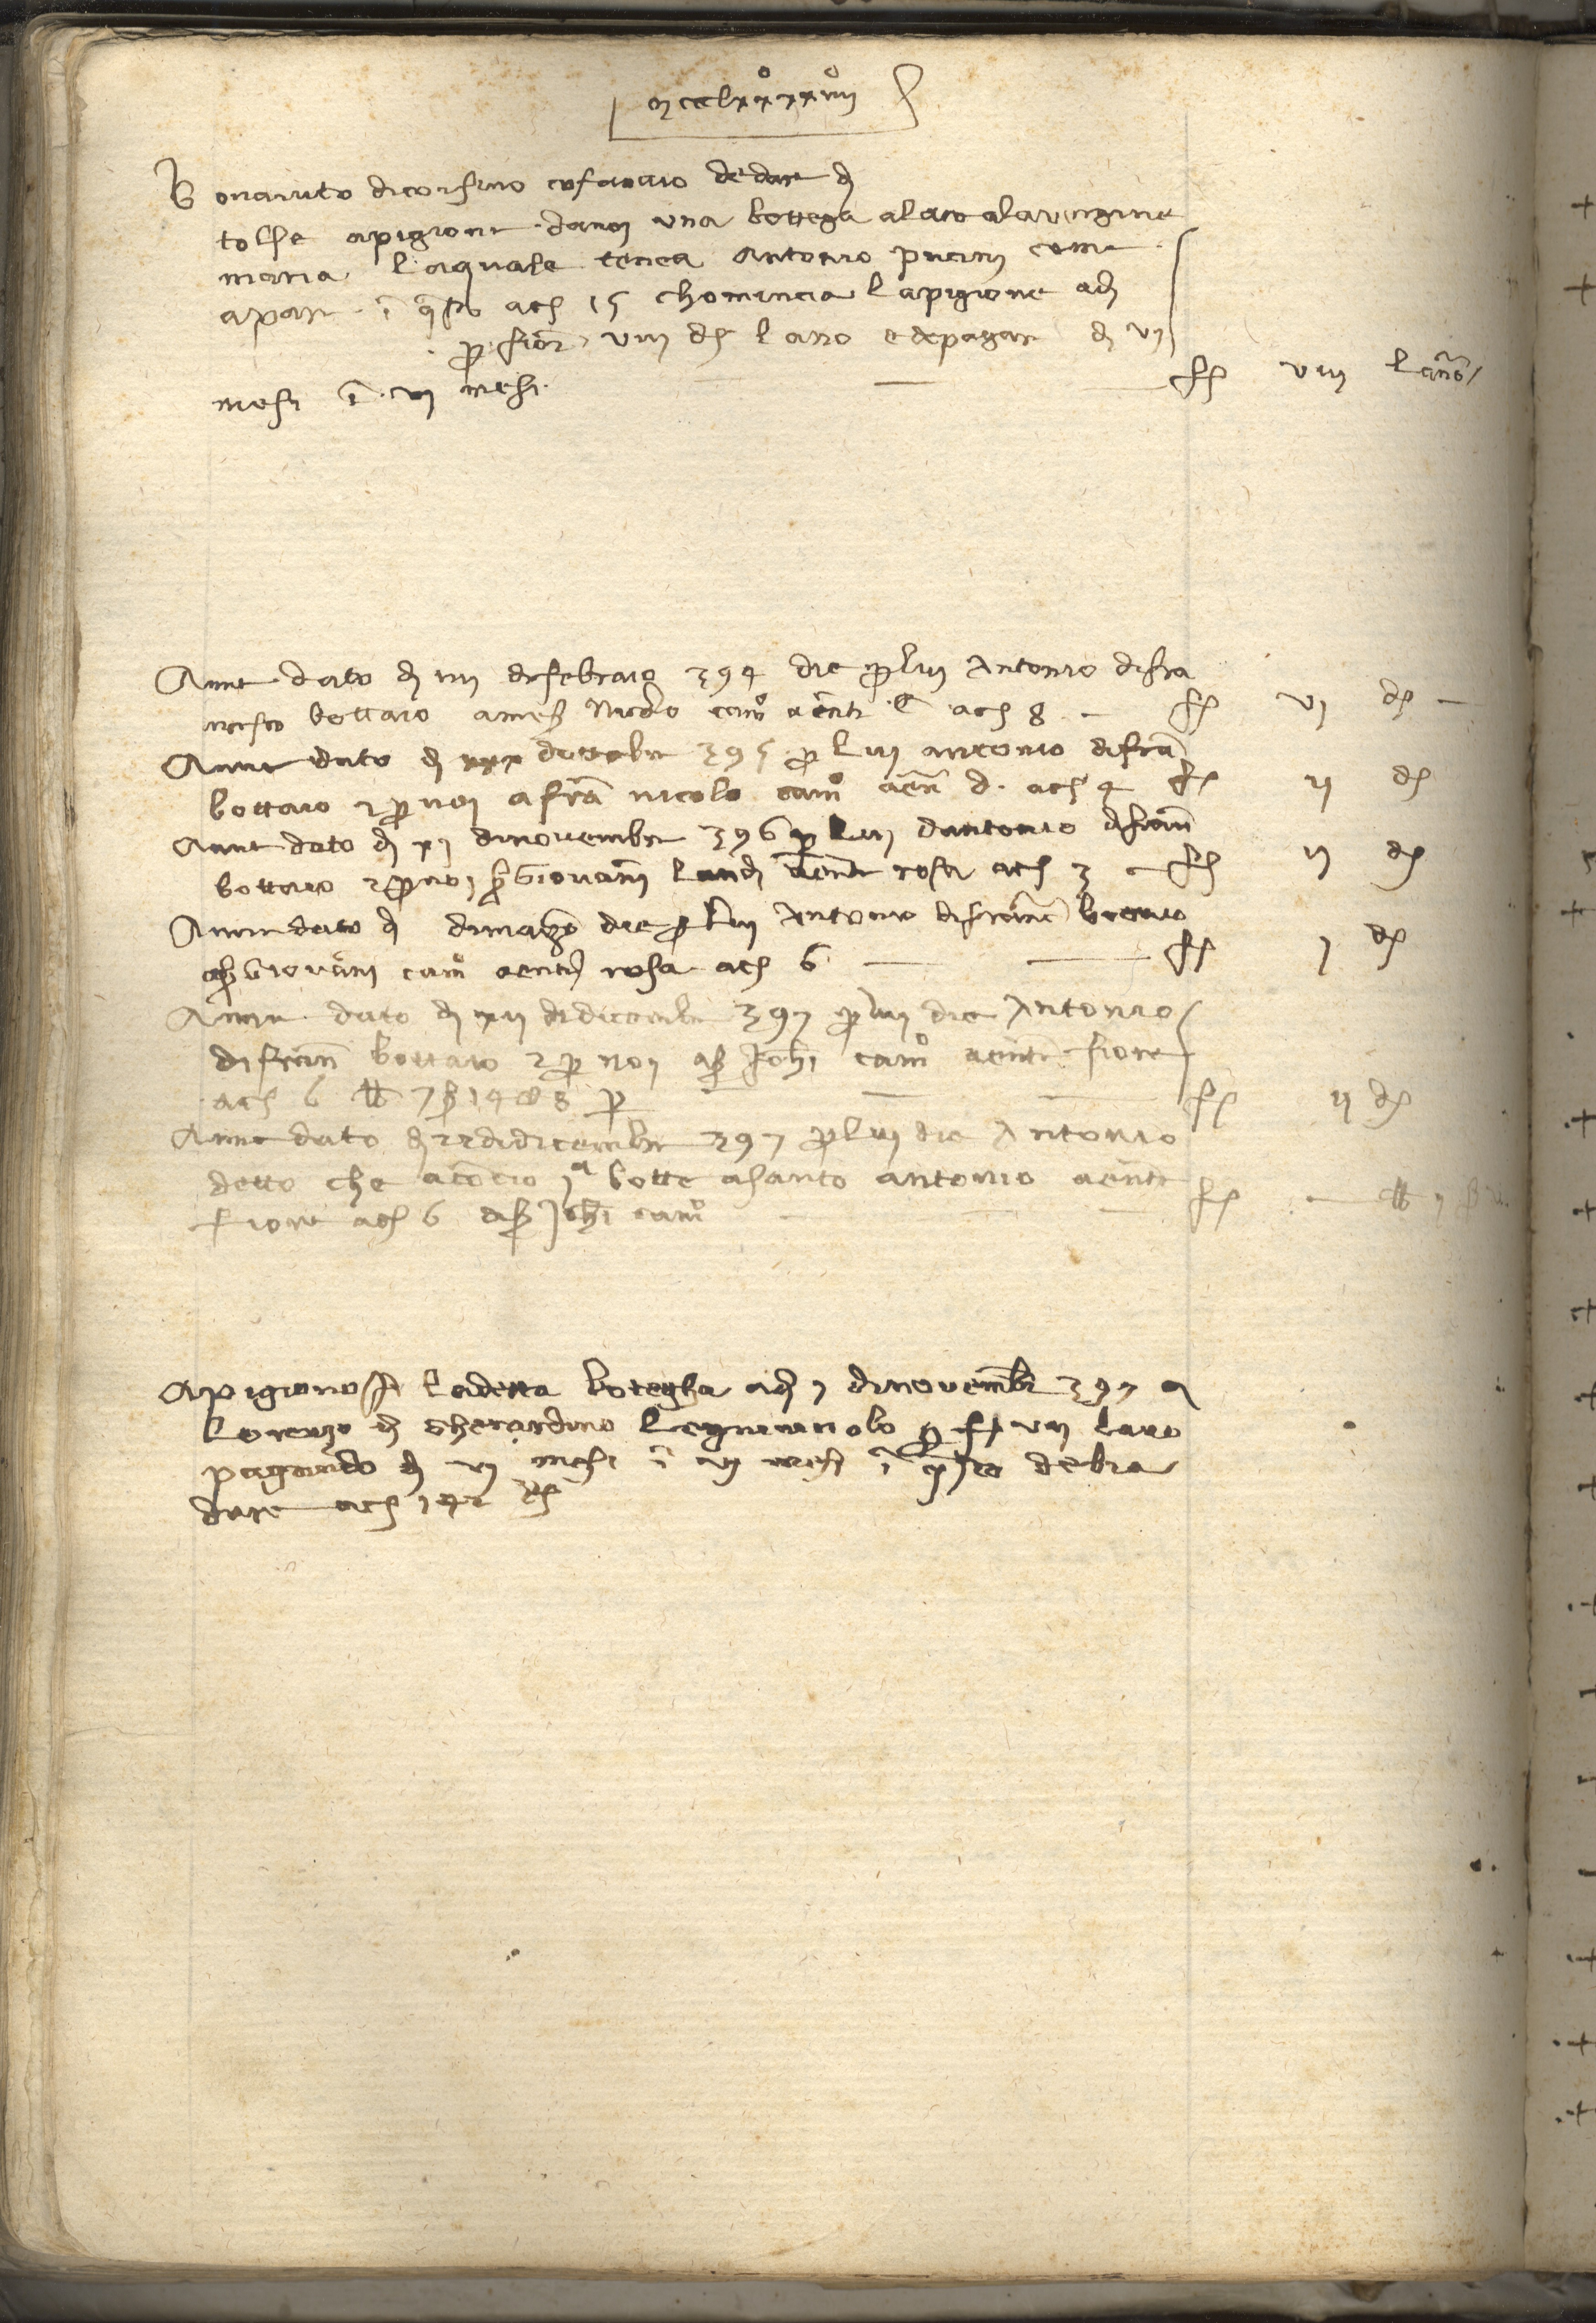 mccclxxxxiiij
Bonaiuto di corsino cofanaio de dare dj
tolse a pigione da noj una bottega alato ala vergine
maria la quale tenea Antonio pucinj come
apare ī q̄sto ac̣ 15 chomincia la pigione adj
p̱ fior viij dj lano e de pagare dj vj
mesi ī vj mesi — — ff viij lanō
Anne dato dj iiij di febraio 394 die p̱ luj Antonio di fra
ncescho bottaio a meß Nicolo camo a entr C ac 8 — ff vj dj —
Anne dato dj xxx dottobre 395 p̱ luj antonio di frā
bottaio 2 p̱ noj a frā nicolo camo a entr d. ac 4 ff ij dj
Anne dato dj xj di novembre 396 p̱ luj dantonio di fran
bottaio 2 p̱ noj ß Giovanī landj a entr rosa ac 3 — ff ij dj
Anne dato dj di marzo die p̱ luj Antonio di franc bottaio
aß Giovānj camo a entr rosa ac 6 — — ff j dj
Anne dato dj xij di dicembre 397 p̱ luj die Antonio
di fran bottaio 2 p̱ noj aß Johī camo a entr fiore
ac 6 ₶ 7 ß 14 8 p̱ — — ff ij dj
Anne dato dj 22 di dicembre 397 p̱ luj die Antonio
detto che aconcio ja botte a santo antonio a entr
fiore ac 6 aß Johī camo — — — ff — ₶ j ß
Apigionossi la detta botegha adj 7 di novembre 397 a
Lorenzo di Gherardino Legnaiuolo p̱ ff vij lano
pagando dj vj mesi ī vj mesi ī q̄sto debia
dare ac 142 dj